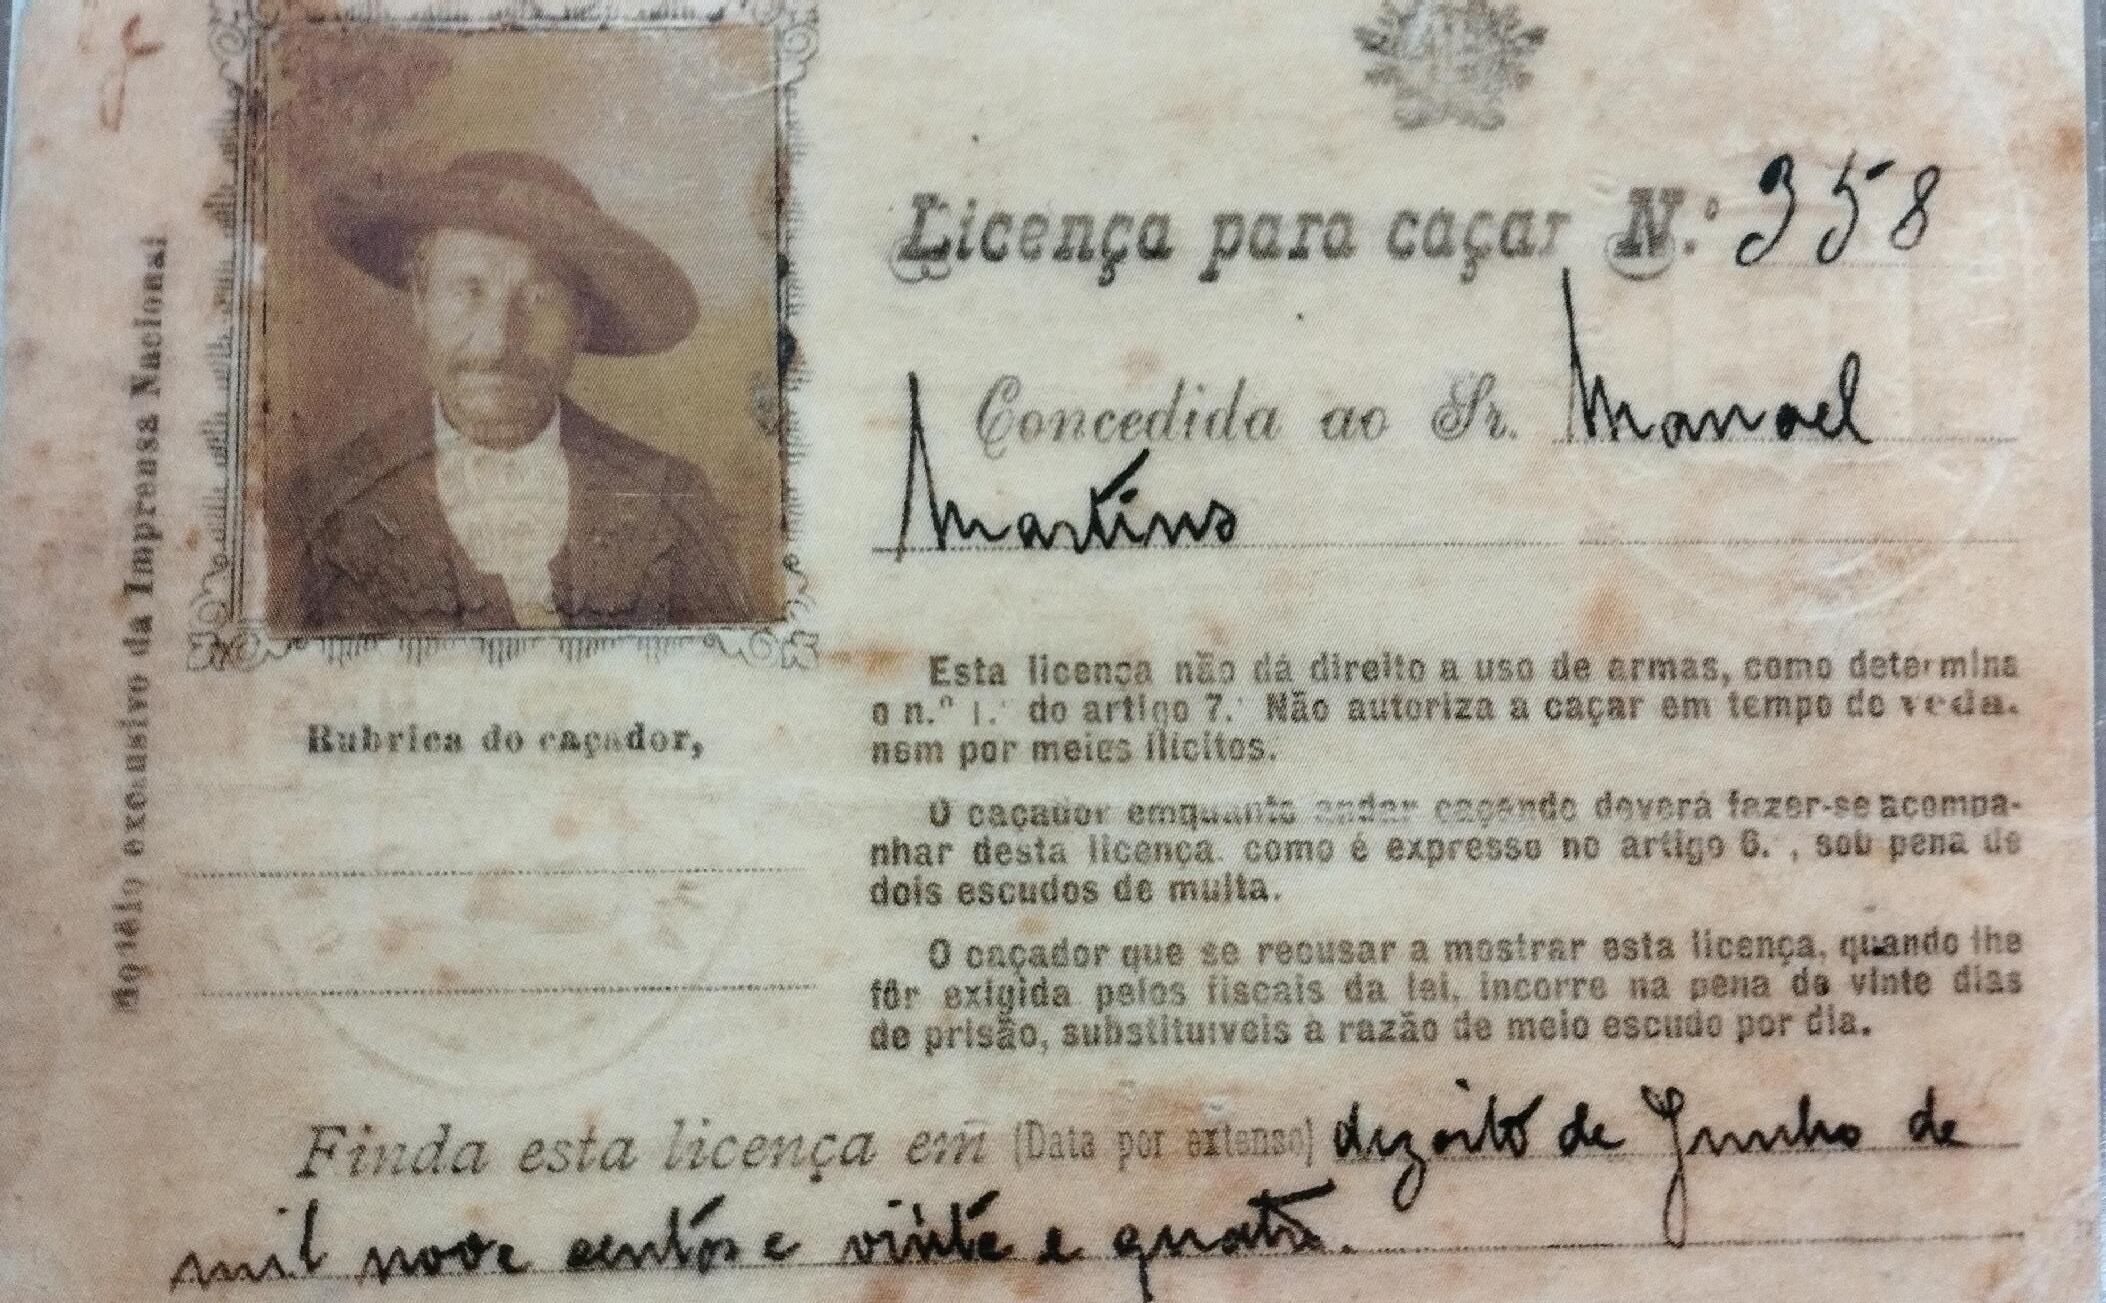 Licença para caçar N.º 358
Concedida ao Sr. Manoel
Martins
Esta licença não dá direito a uso de armas, como determina
o n.º 1.º do artigo 7.º Não autoriza a caçar em tempo de veda,
nem por meios ilícitos.
O caçador emquanto andar caçando deverá fazer-se acompa-
nhar desta licença, como é expresso no artigo 6.º, sob pena de
dois escudos de multa.
O caçador que se recusar a mostrar esta licença, quando lhe
fôr exigida pelos fiscais da lei, incorre na pena de vinte dias
de prisão, substituíveis à razão de meio escudo por dia.
Rubrica do caçador,
Modêlo exclusivo da Imprensa Nacional
Finda esta licença em (Data por extenso) dezoito de Junho de
mil nove centos e vinte e quatro.